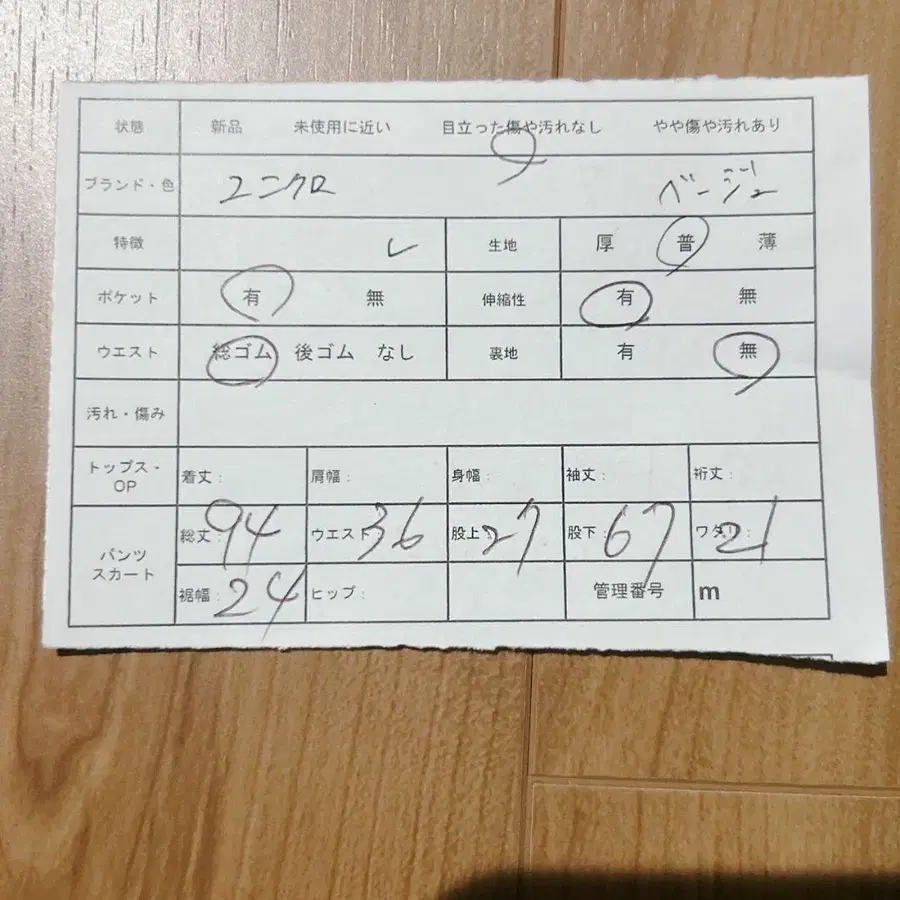 状態 新品 未使用に近い 目立った傷や汚れなし やや傷や汚れあり
ブランド・色 ユニクロ ベージュ
特徴 レ 生地 厚 普 薄
ポケット 有 無 伸縮性 有 無
ウエスト 総ゴム 後ゴム なし 裏地 有 無
汚れ・傷み
トップス・OP 着丈: 肩幅: 身幅: 袖丈: 裄丈:
パンツ スカート 総丈: 94 ウエスト 36 股上: 27 股下: 67 ワタリ: 21
裾幅: 24 ヒップ: 管理番号 m